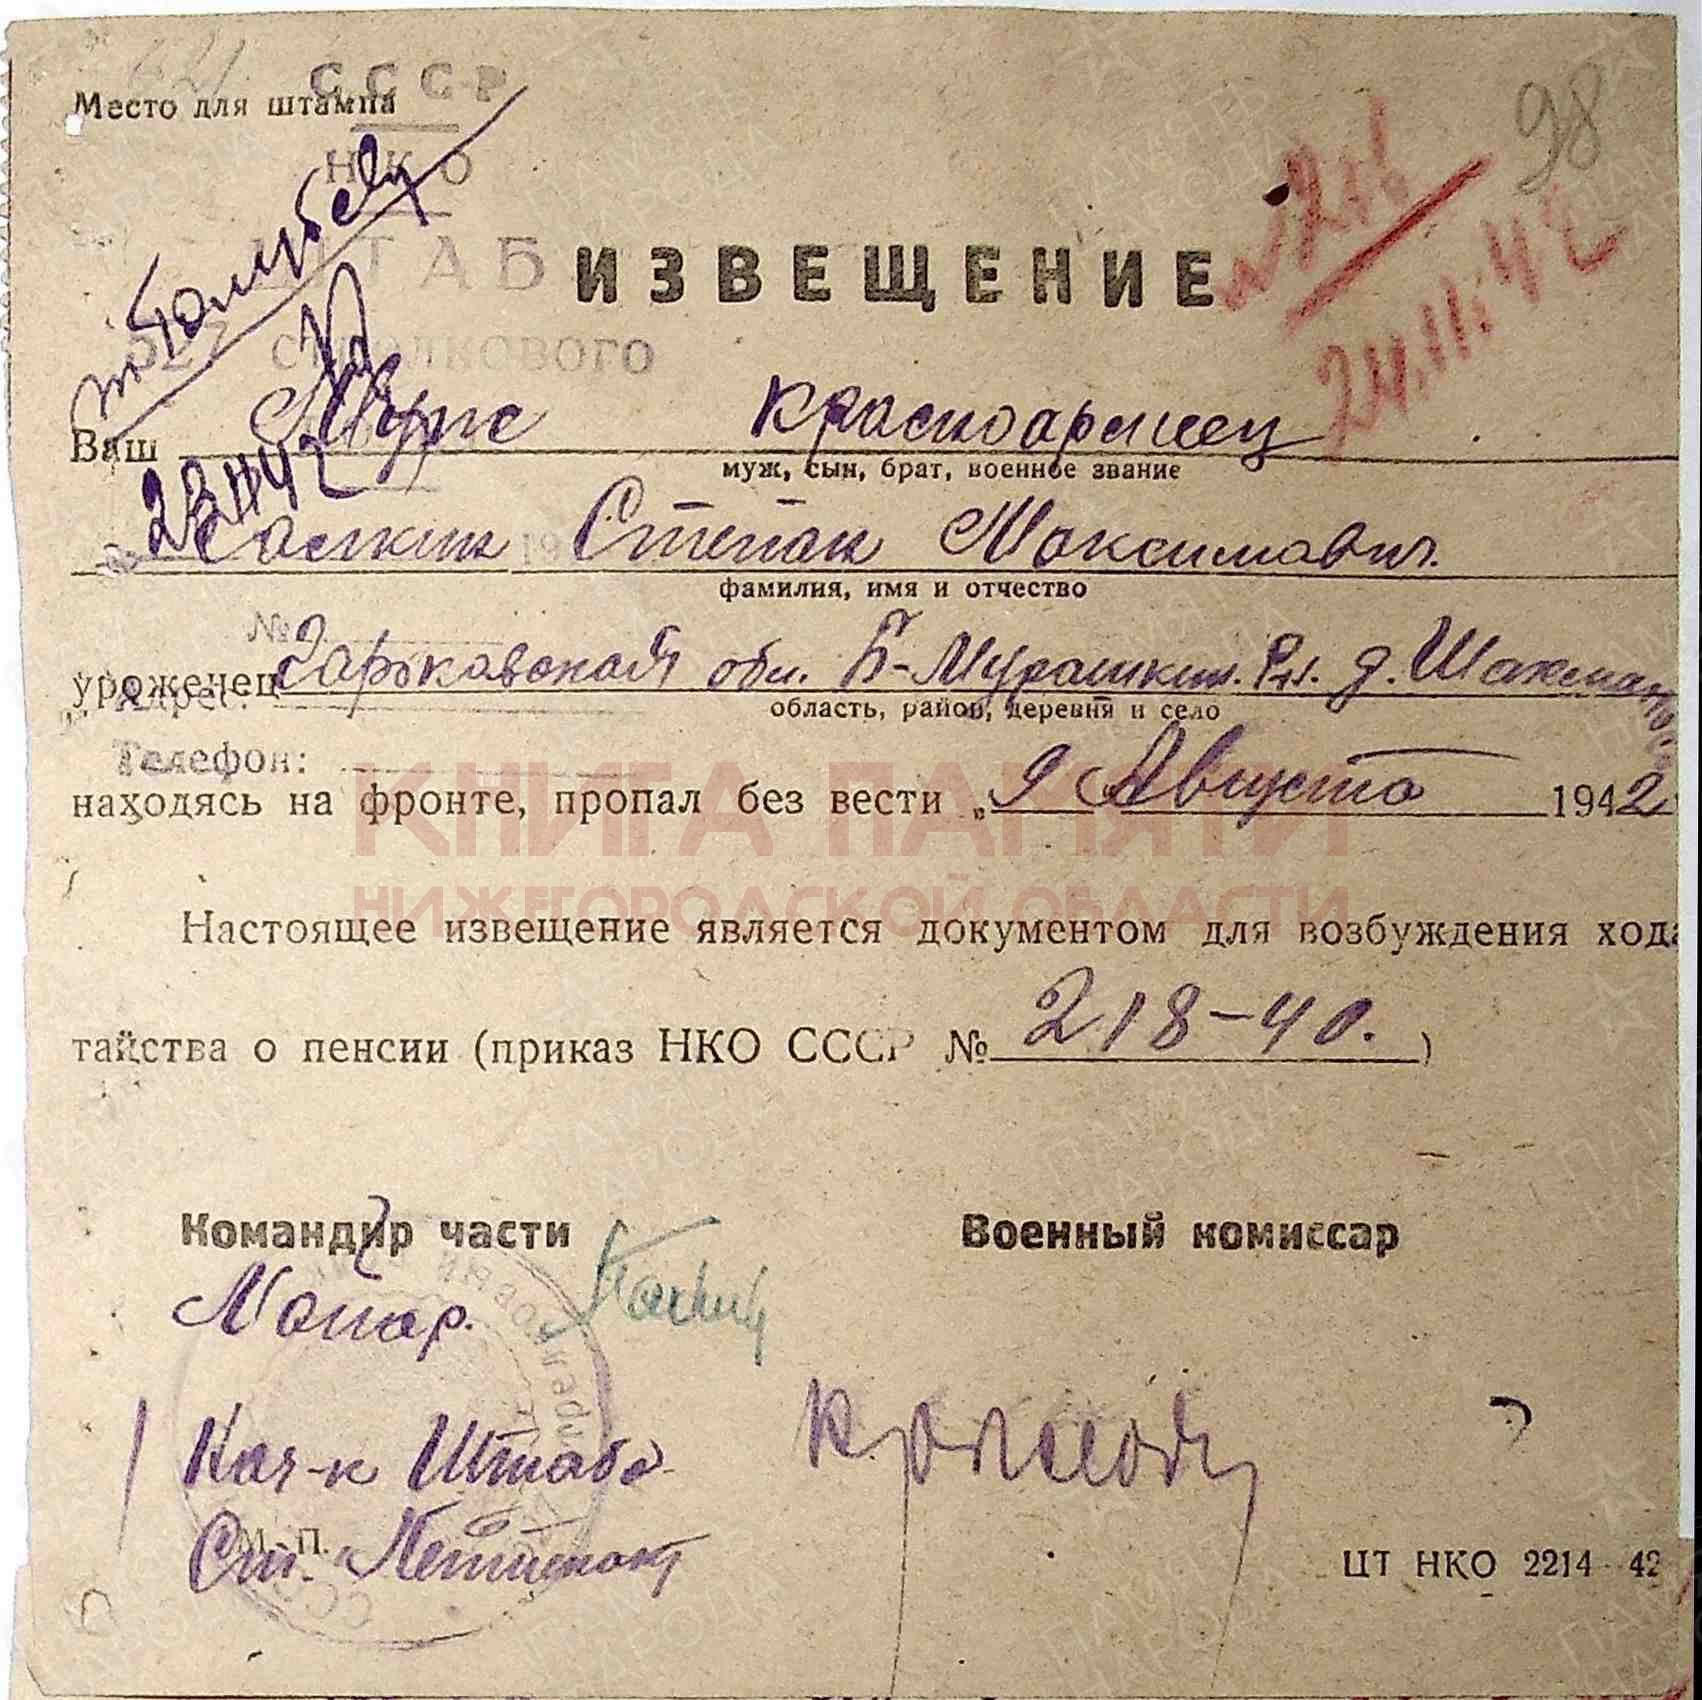 98
СССР
Место для штампа
НКО
ШТАБ
ИЗВЕЩЕНИЕ
24.11.42
527 стрелкового
Ваш Муж красноармеец
муж, сын, брат, военное звание
23.11.42
Салкин Степан Максимович.
фамилия, имя и отчество
№
уроженец Горьковская обл. Б-Мурашкин. Р-н. д. Шахманово
Адрес:
область, район, деревня и село
Телефон:
находясь на фронте, пропал без вести „9 Августа 1942
КНИГА ПАМЯТИ
НИЖЕГОРОДСКОЙ ОБЛАСТИ
Настоящее извещение является документом для возбуждения хода
тайства о пенсии (приказ НКО СССР № 218-40.)
Командир части Военный комиссар
Майор.
Нач-к Штаба
М. П.
Ст.
ЦТ НКО 2214-42